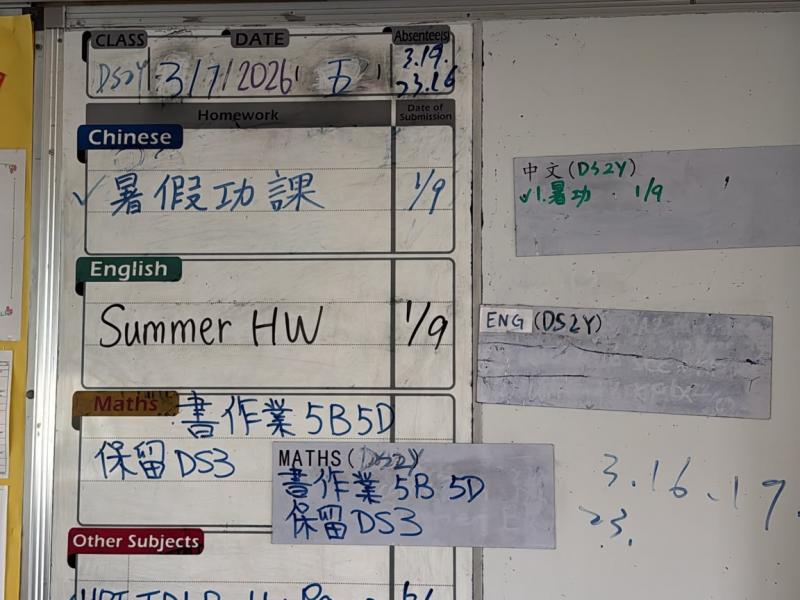 CLASS DATE Absentee(s)
DS2Y 3/7/2026 五 3.19.
23.16
Homework Date of Submission
Chinese
✓ 暑假功課 1/9
English
Summer HW 1/9
Maths 書作業 5B5D
保留DS3
Other Subjects
中文(DS2Y)
✓1.暑功 1/9
ENG (DS2Y)
MATHS (DS2Y)
書作業 5B 5D
保留DS3
3.16.19.
23.